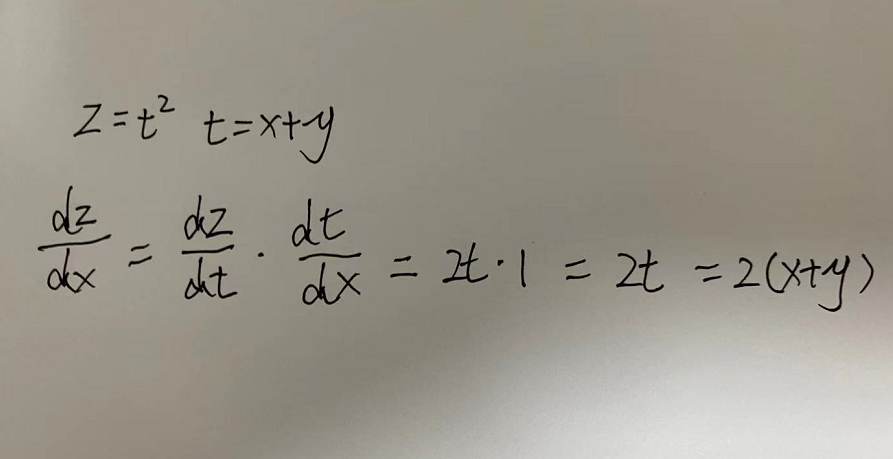 z=t² t=x+y
dz/dx = dz/dt · dt/dx = 2t·1 = 2t = 2(x+y)